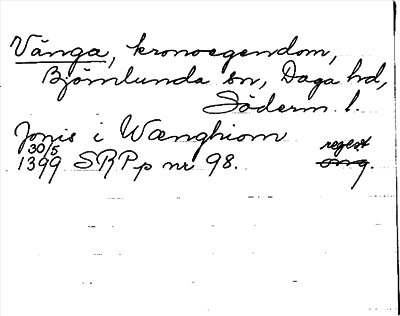 Vänga, kronoegendom,
Björnlunda sn, Daga hd,
Söderm. l.
Jonis i Wænghiom
30/5
1399 SRPp nr 98.
regest
orig.